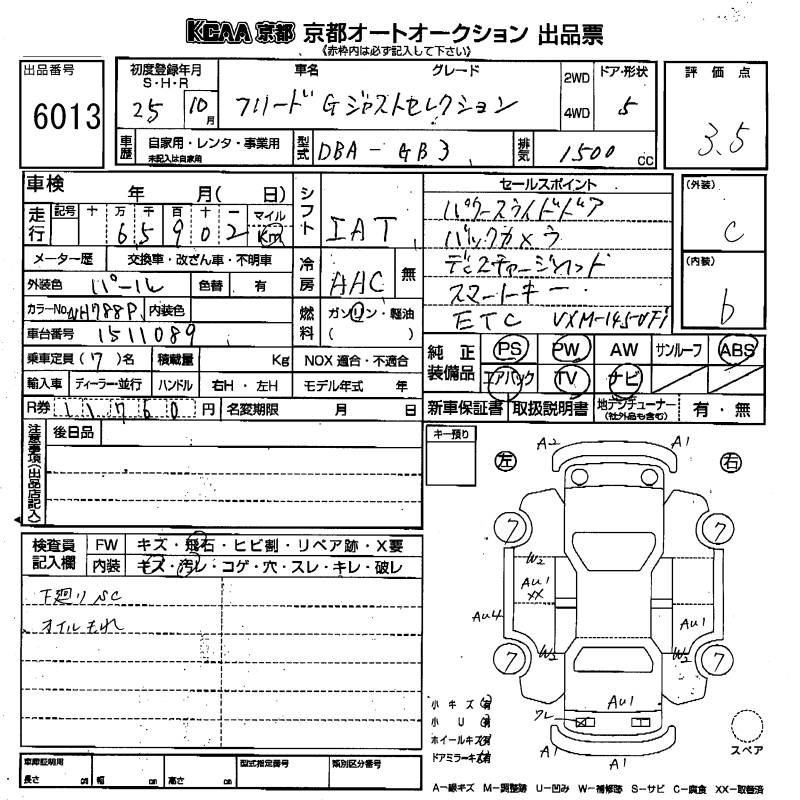 KCAA 京都 京都オートオークション 出品票
《赤枠内は必ず記入して下さい》
出品番号
6013
初度登録年月
S・H・R
25 10月
車名 グレード
フリード Gジャストセレクション
2WD
4WD
ドア・形状
5
評価点
3.5
車歴
自家用・レンタ・事業用
未記入は自家用
型式
DBA-GB3
排気
1500 cc
車検 年 月( 日)
走行
記号 十 万 千 百 十 一 マイル
6 5 9 0 2 Km
メーター歴 交換車・改ざん車・不明車
外装色 パール 色替 有
カラーNo. NH788P 内装色
車台番号 1511089
乗車定員(7)名 積載量 Kg
輸入車 ディーラー・並行 ハンドル 右H・左H
R券 11760円 名変期限 月 日
シフト
IAT
冷房
AAC 無
燃料
ガソリン・軽油
( )
NOX 適合・不適合
モデル年式 年
セールスポイント
パワースライドドア
バックカメラ
ディスチャージヘッド
スマートキー
ETC VXM-145VFi
(外装)
C
(内装)
b
純正装備品
PS PW AW サンルーフ ABS
エアバック TV ナビ
新車保証書 取扱説明書 地デジチューナー(社外品も含む) 有・無
注意事項(出品店記入)
後日品
キー預り
検査員記入欄
FW キズ・飛石・ヒビ割・リペア跡・X要
内装 キズ・汚レ・コゲ・穴・スレ・キレ・破レ
下廻りSC
オイルもれ
左 右
A2 A1
7 7
W2
AU1
XX
AU4 AU1
W2 W2
7 7
AU1
ワレ
A1 A1
小キズ(有)
小U(有)
ホイールキズ(有)
ドアミラーキズ(有)
スペア
車庫証明用
長さ cm 幅 cm 高さ cm
型式指定番号 類別区分番号
A-線キズ M-調整跡 U-凹み W-補修跡 S-サビ C-腐食 XX-取替済